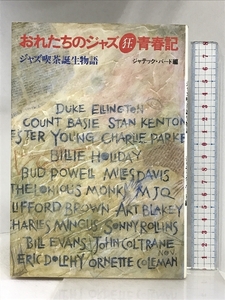 おれたちのジャズ狂青春記
ジャズ喫茶誕生物語
ジャテック・バード編
DUKE ELLINGTON
COUNT BASIE STAN KENTON
ESTER YOUNG CHARLIE PARKE
BILLIE HOLIDAY
BUD POWELL MILES DAVIS
THELONIOUS MONK MJQ
LIFFORD BROWN ART BLAKEY
CHARLES MINGUS SONNY ROLLINS
BILL EVANS JOHN COLTRANE
ERIC DOLPHY ORNETTE COLEMAN